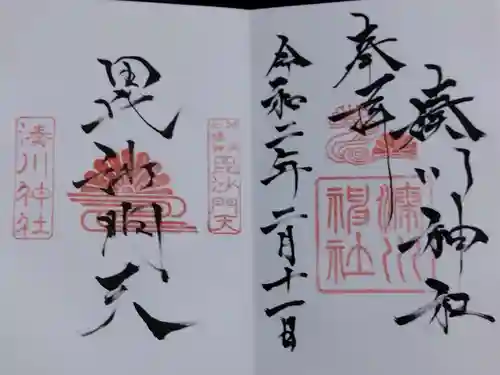 奉拝
湊川神社
湊川神社
令和二年二月十一日
毘沙門天
毘沙門天
湊川神社